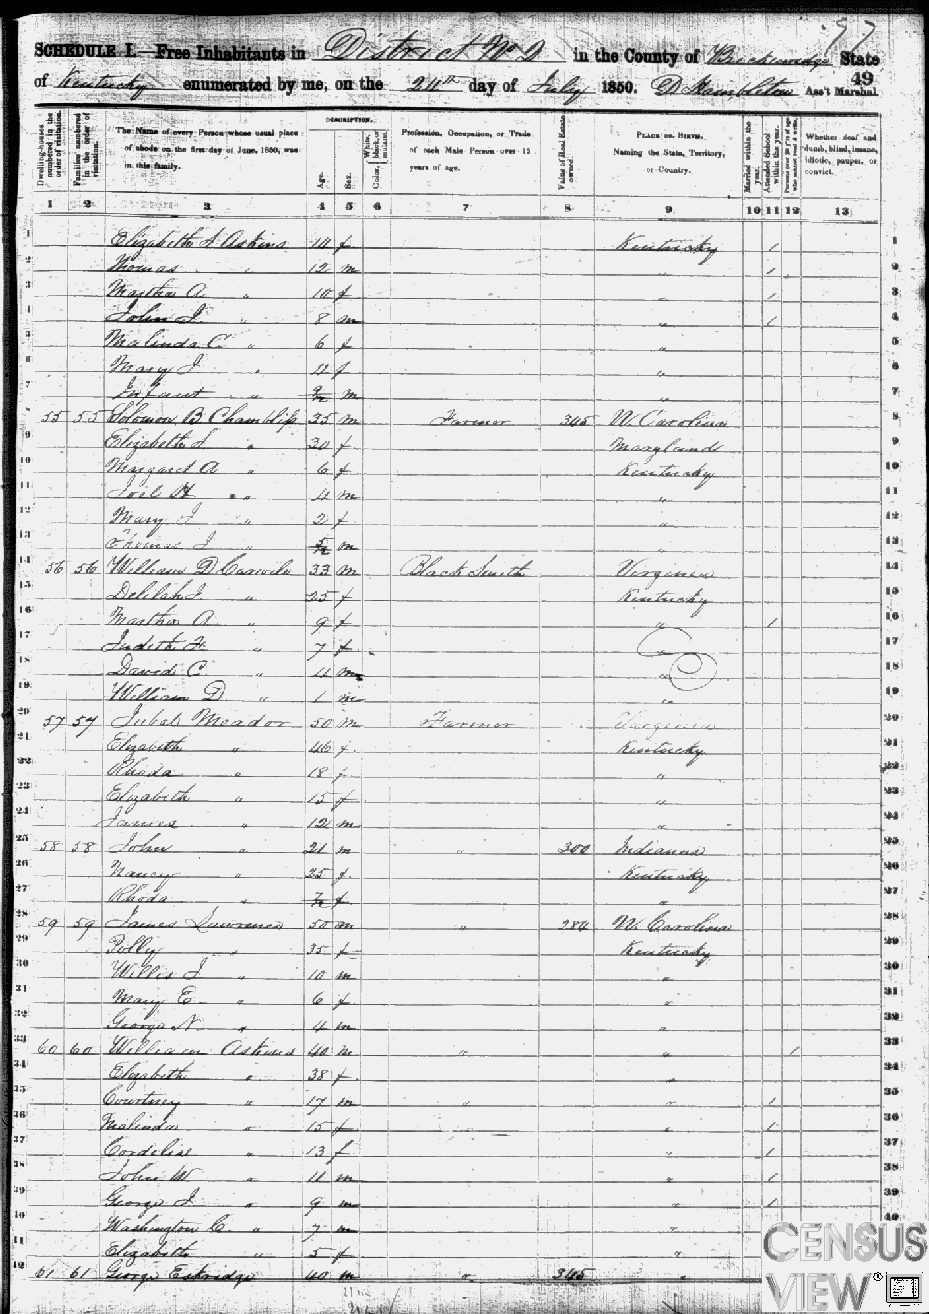 97
SCHEDULE I.—Free Inhabitants in District No 2 in the County of Breckenridge State
49
of Kentucky enumerated by me, on the 24th day of July 1850. D Hambleton Ass't Marshal.
Dwelling-houses numbered in the order of visitation.
Families numbered in the order of visitation.
The Name of every Person whose usual place of abode on the first day of June, 1850, was in this family.
DESCRIPTION.
Age.
Sex.
Color, White, black, or mulatto.
Profession, Occupation, or Trade of each Male Person over 15 years of age.
Value of Real Estate owned.
PLACE OF BIRTH. Naming the State, Territory, or Country.
Married within the year.
Attended School within the year.
Persons over 20 y'rs of age who cannot read & write.
Whether deaf and dumb, blind, insane, idiotic, pauper, or convict.
1 2 3 4 5 6 7 8 9 10 11 12 13
1 Elizabeth Askins 14 f Kentucky 1 1
2 Thomas " 12 m " 1 2
3 Martha A " 10 f " 1 3
4 John " 8 m " 1 4
5 Malinda C " 6 f " 5
6 Mary J " 4 f " 6
7 Infant " m " 7
8 55 55 Solomon B Chambliss 35 m Farmer 345 N. Carolina 8
9 Elizabeth " 30 f Maryland 9
10 Margaret A " 6 f Kentucky 10
11 Joel H " 4 m " 11
12 Mary J " 2 f " 12
13 Thomas J " 5/12 m " 13
14 56 56 William D 33 m Black Smith Virginia 14
15 Delilah J " 25 f Kentucky 15
16 Martha A " 9 f " 1 16
17 Judith " 7 f " 17
18 David C " 4 m " 18
19 William D " 1 m " 19
20 57 57 Jubal Meador 50 m Farmer Virginia 20
21 Elizabeth " 46 f Kentucky 21
22 Rhoda " 18 f " 22
23 Elizabeth " 15 f " 23
24 James " 12 m " 24
25 58 58 John " 21 m " 300 Indiana 25
26 Nancy " 25 f Kentucky 26
27 Rhoda " f " 27
28 59 59 James Lawrence 50 m " 284 N. Carolina 28
29 Polly " 35 f Kentucky 29
30 Willis J " 10 m " 30
31 Mary E " 6 f " 31
32 George N. " 4 m " 32
33 60 60 William Askins 40 m " " 1 33
34 Elizabeth " 38 f " 34
35 Courtney " 17 m " " 1 35
36 Malinda " 15 f " 1 36
37 Cordelia " 13 f " 1 37
38 John W " 11 m " 1 38
39 George J " 9 m " 1 39
40 Washington C " 7 m " 40
41 Elizabeth " 5 f "
42 61 61 George Eskridge 40 m " 345 "
CENSUS
VIEW®